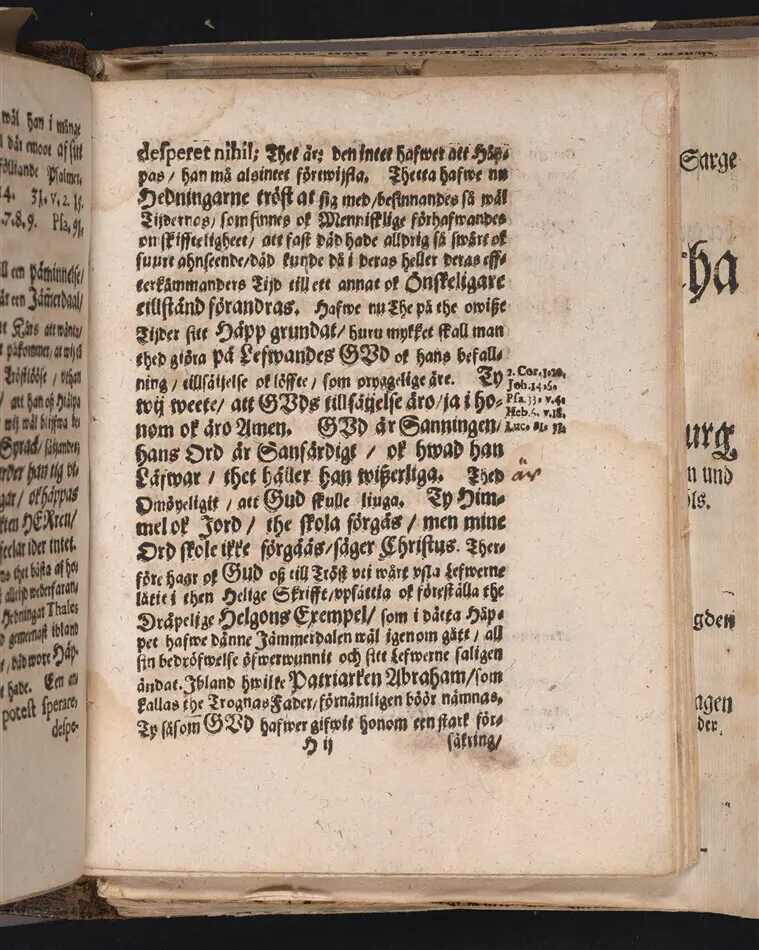 wäl han i månge
där emoot af sitt
följiande Psalmer.
14. 31. v. 2. 15.
7. 8. 9. Psa. 91.
påminnelse/
Jämerdaal/
Tröstlööse / uthan
/ att han oß Hiälpa
wij wäl blifwa be
och häppas
HERren/
Thales
Häp-
hade. Een an
potest sperare,
despe-
desperet nihil; Thet är; den intet hafwer att Häp-
pas / han må alsintet förtwijfla. Thetta hafwe nu
Hedningarne tröstat sig med / befinnandes så wäl
Tijdernes / som finnes ok Mennisklige förhafwandes
omskiffteligheet / att fast dåd hade alldrig så swårt ok
suurt ahnseende / dåd kunde då i deras heller deras eff-
terkåmmanders Tijd till ett annat ok Önskeligare
tillstånd förandras. Hafwe nu The på the owiße
Tijder sitt Häpp grundat / huru mykket skall man
thed giöra på Lefwandes GUd ok hans befall-
ning / tillsäijelse ok löffte / som oryggelige äre. Ty
wij weete / att GUds tillsäijelse äro / ja i ho-
nom ok äro Amen. GUd är Sanningen /
hans Ord är Sanfärdigt / ok hwad han
Läfwar / thet håller han wißerliga. Thed
är
Omöyeligit / att Gud skulle liuga. Ty Him-
mel ok Jord / the skola förgås / men mine
Ord skole ikke förgåås / säger Christus. Ther-
före hagr ok Gud oß till Tröst uti wårt usla Lefwerne
låtit i then Helige Skrifft / upsättia ok föreställa the
Dräpelige Helgons Exempel / som i dätta Häp-
pet hafwe dänne Jämmerdalen wäl igenom gått / all
sin bedröfwelse öfwerwunnit och sitt Lefwerne saligen
ändat. Ibland hwilke Patriarken Abraham / som
kallas the Trognas Fader / förnämligen böör nämnas.
Ty såsom GUd hafwer gifwit honom een stark för-
H ij
säkring /
2. Cor. 1. 20.
Joh. 14. 6.
Psa. 33. v. 4.
Heb. 6. v. 18.
Luc. 21. 33.
Sarge
tha
urg
n und
ols.
gden
agen
der.